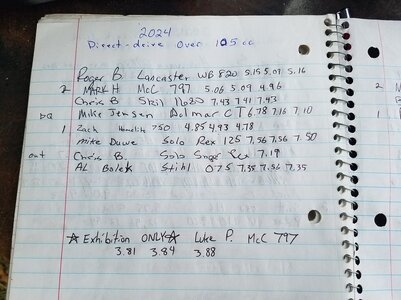 2024
Direct-drive Over 105cc
Roger B Lancaster WB 820 5.15 5.07 5.16
2 MARK H McC 797 5.06 5.09 4.96
Chris B Skil 1620 7.43 7.41 7.43
DQ Mike Jensen Dolmar CT 6.78 7.16 7.10
1 Zach Homelite 750 4.85 4.93 4.78
Mike Duwe Solo Rex 125 7.56 7.56 7.50
out Chris B. Solo Super Rex 7.19
AL Bolek Stihl 075 7.35 7.56 7.35
☆ Exhibition ONLY ☆ Luke P. McC 797
3.81 3.84 3.88